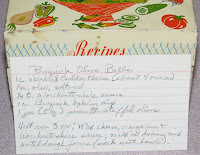 Recipes
Bisquick Olive Balls
1 c. shredded Cheddar Cheese (about 4 ounces)
oleo, softened
t. Worcestershire sauce
1 c. Bisquick baking mix
jar (5 oz.) pimiento-stuffed olives
Heat oven 400°. Mix cheese, margarine &
worcestershire sauce; stir in baking mix
until dough forms (work with hands).